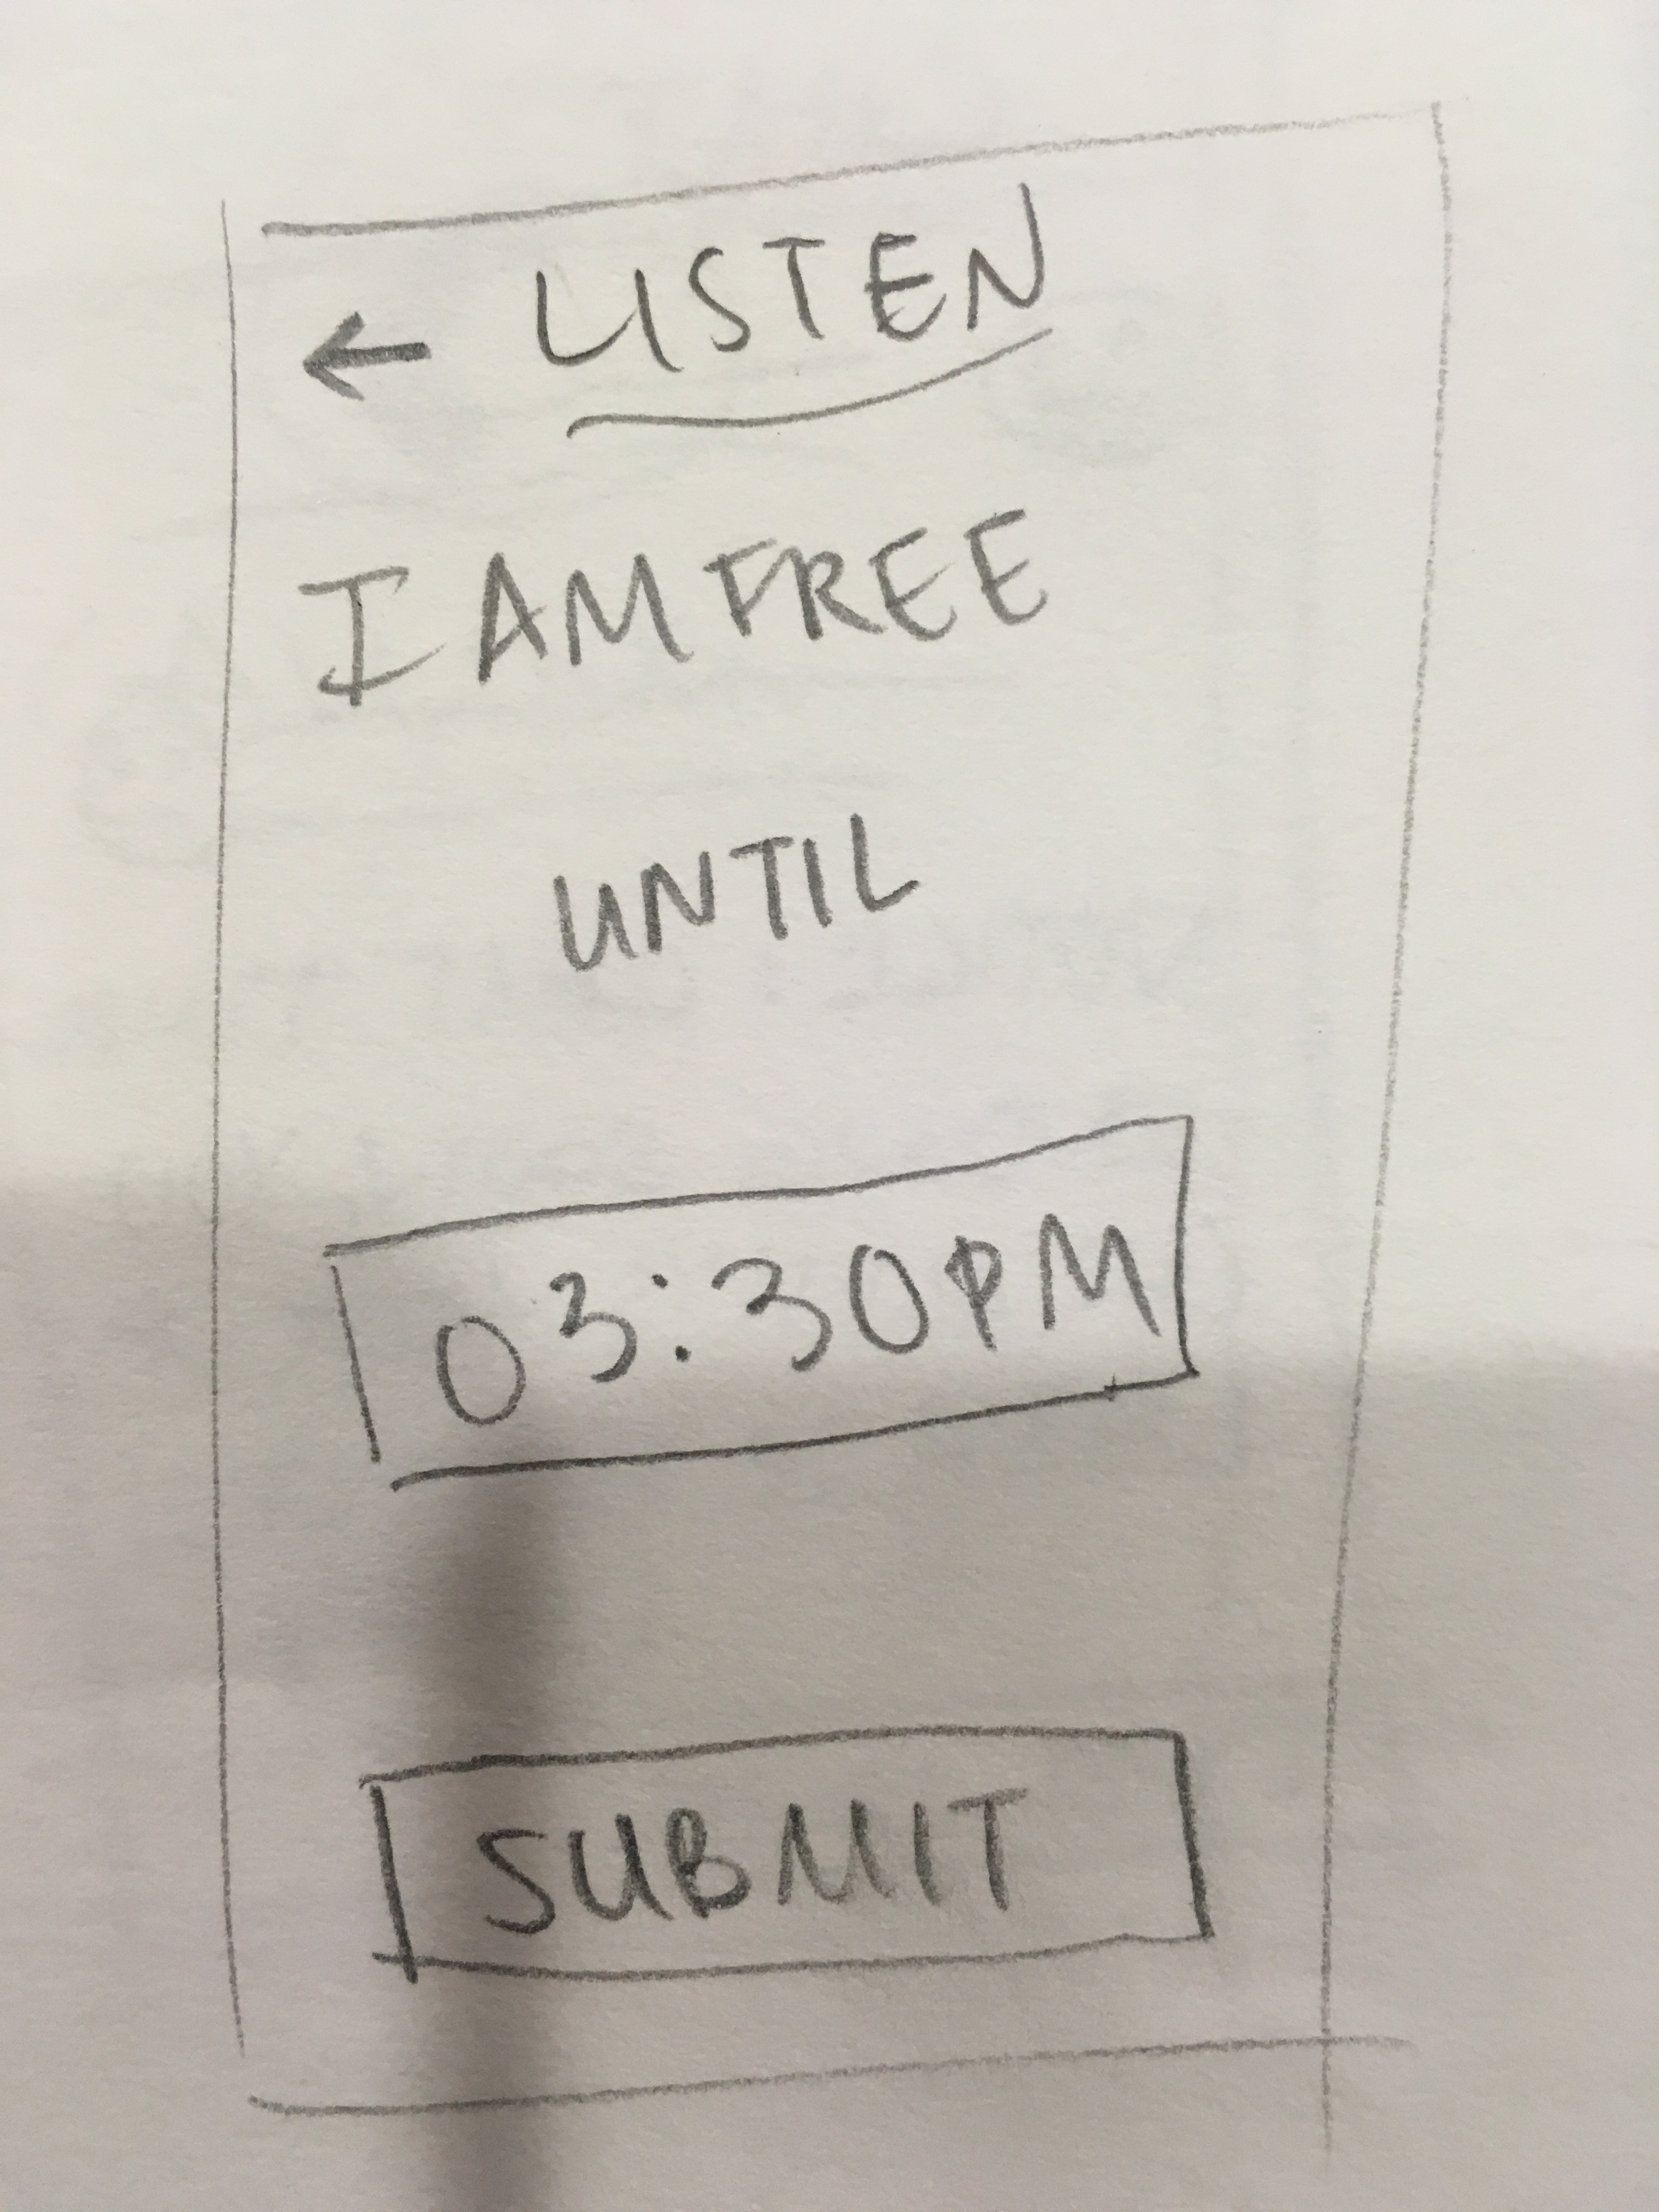 ← LISTEN
I AM FREE
UNTIL
03:30PM
SUBMIT